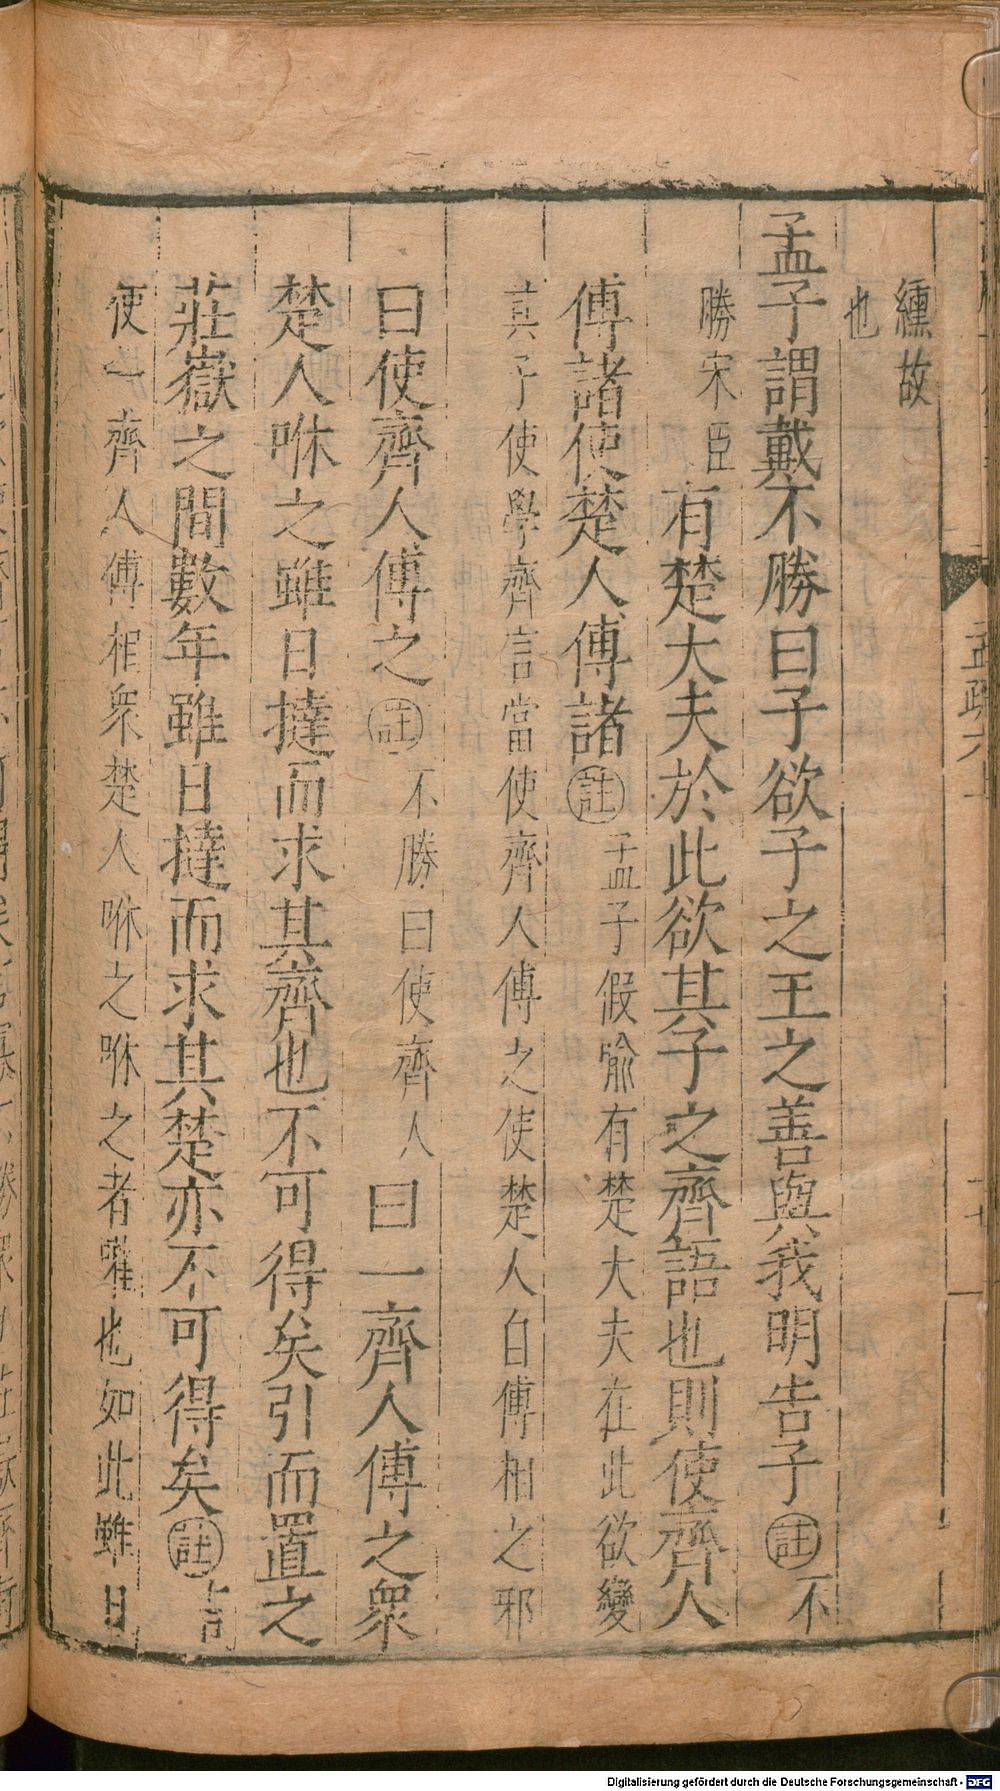 纁故
也
孟子謂戴不勝曰子欲子之王之善與我明告子註不
勝宋臣有楚大夫於此欲其子之齊語也則使齊人
傅諸使楚人傅諸註孟子假喻有楚大夫在此欲變
其子使學齊言當使齊人傅之使楚人自傅相之邪
曰使齊人傅之註不勝曰使齊人曰一齊人傅之衆
楚人咻之雖日撻而求其齊也不可得矣引而置之
莊嶽之間數年雖日撻而求其楚亦不可得矣註言
使一齊人傅相衆楚人咻之咻之者嚾也如此雖日
孟疏六
Digitalisierung gefördert durch die Deutsche Forschungsgemeinschaft - DFG